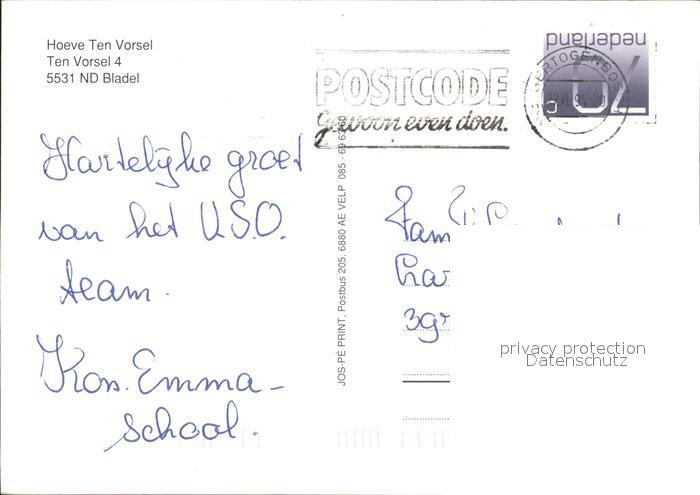 Hoeve Ten Vorsel
Ten Vorsel 4
5531 ND Bladel
POSTCODE
gewoon even doen.
nederland
70
c
Hartelijke groet
van het V.S.O.
team.
Kon. Emma-
school.
JOS-PÉ PRINT, Postbus 205, 6880 AE VELP 085 -
Fam
privacy protection
Datenschutz